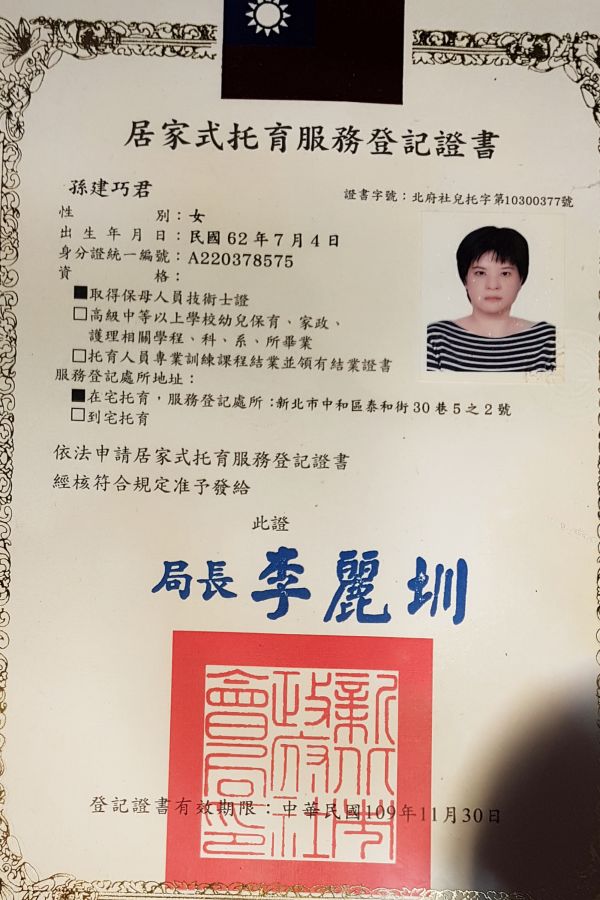 居家式托育服務登記證書
孫建巧君
證書字號：北府社兒托字第10300377號
性別：女
出生年月日：民國62年7月4日
身分證統一編號：A220378575
資格：
■取得保母人員技術士證
□高級中等以上學校幼兒保育、家政、
護理相關學程、科、系、所畢業
□托育人員專業訓練課程結業並領有結業證書
服務登記處所地址：
■在宅托育，服務登記處所：新北市中和區泰和街30巷5之2號
□到宅托育
依法申請居家式托育服務登記證書
經核符合規定准予發給
此證
局長 李麗圳
新北市
政府社
會局印
登記證書有效期限：中華民國109年11月30日